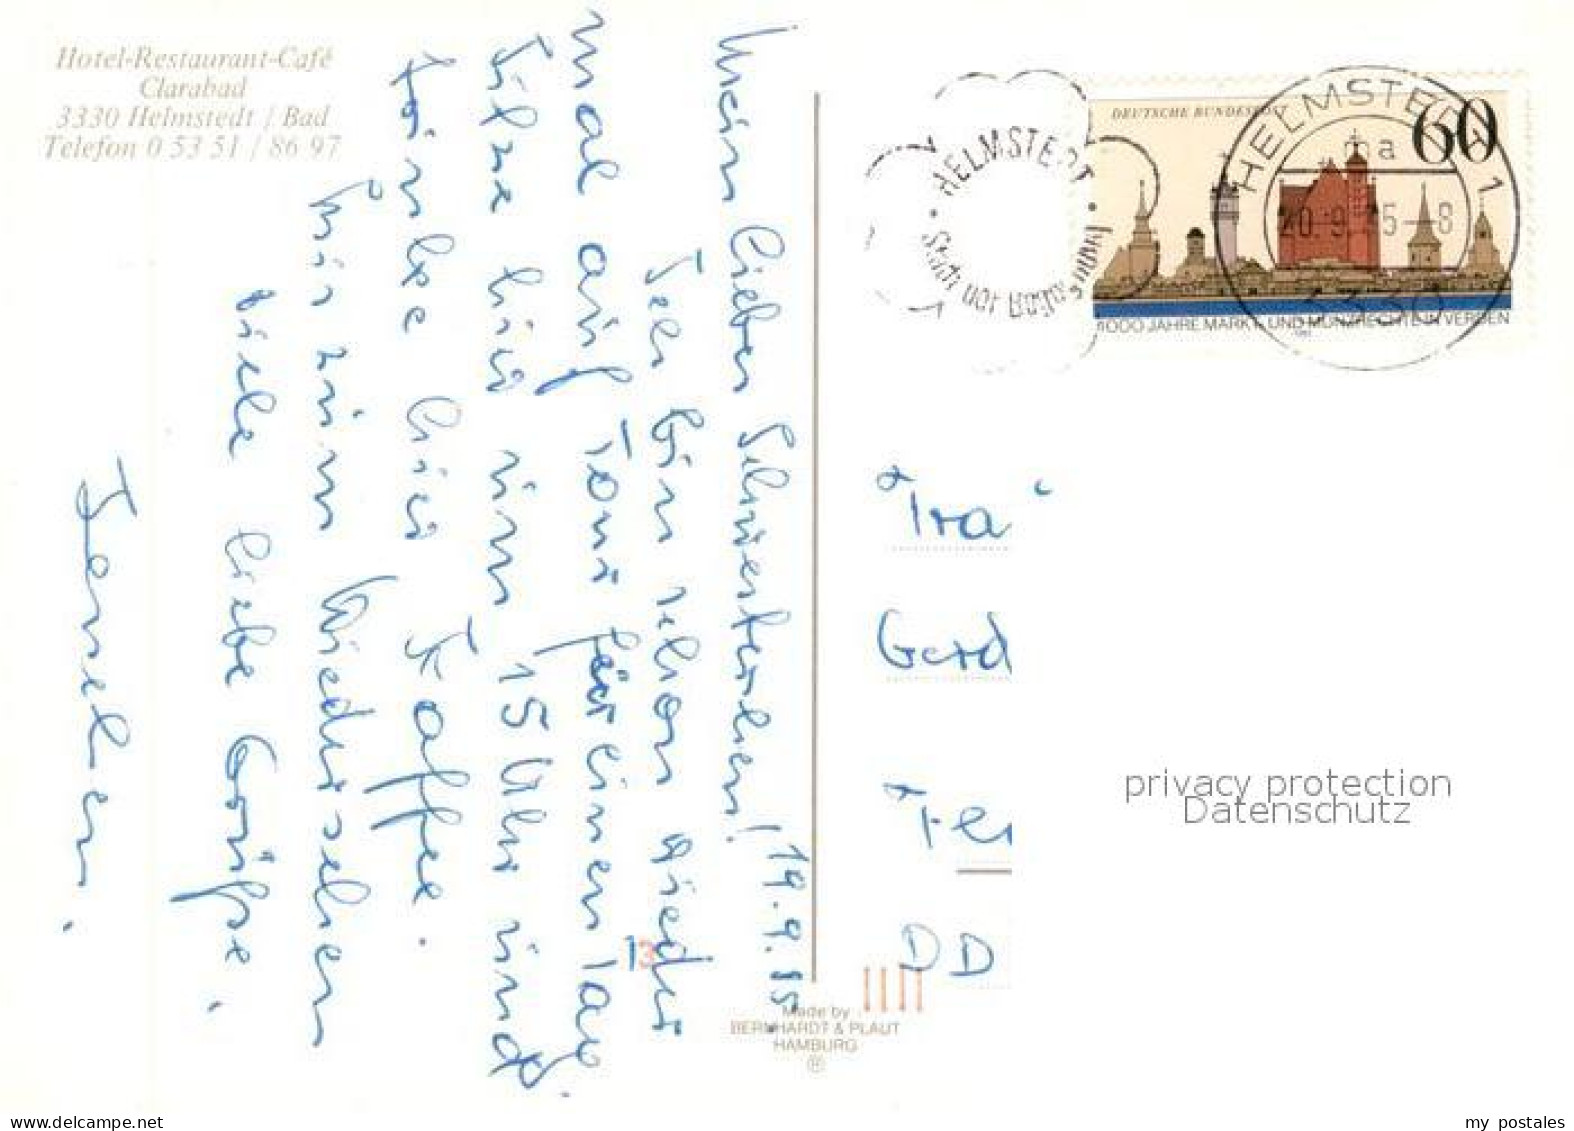 Hotel-Restaurant-Café
Clarabad
3330 Helmstedt / Bad
Telefon 0 53 51 / 86 97
19.9.85
Mein liebes Schwesterchen!
Jes bin schon wieder
mal auf Tour für einen Tag.
Sitze hier um 15 Uhr und
trinke hier Kaffee.
Bis zum Wiedersehen
viele liebe Grüße.
HELMSTEDT
DEUTSCHE BUNDESPOST
60
HELMSTEDT 1
na
20.9.85-8
3330
1000 JAHRE MARKT- UND MÜNZRECHTE IN VERDEN
Gerd
DD
privacy protection
Datenschutz
13
Made by
BERNHARDT & PLAUT
HAMBURG
www.delcampe.net
my_postales